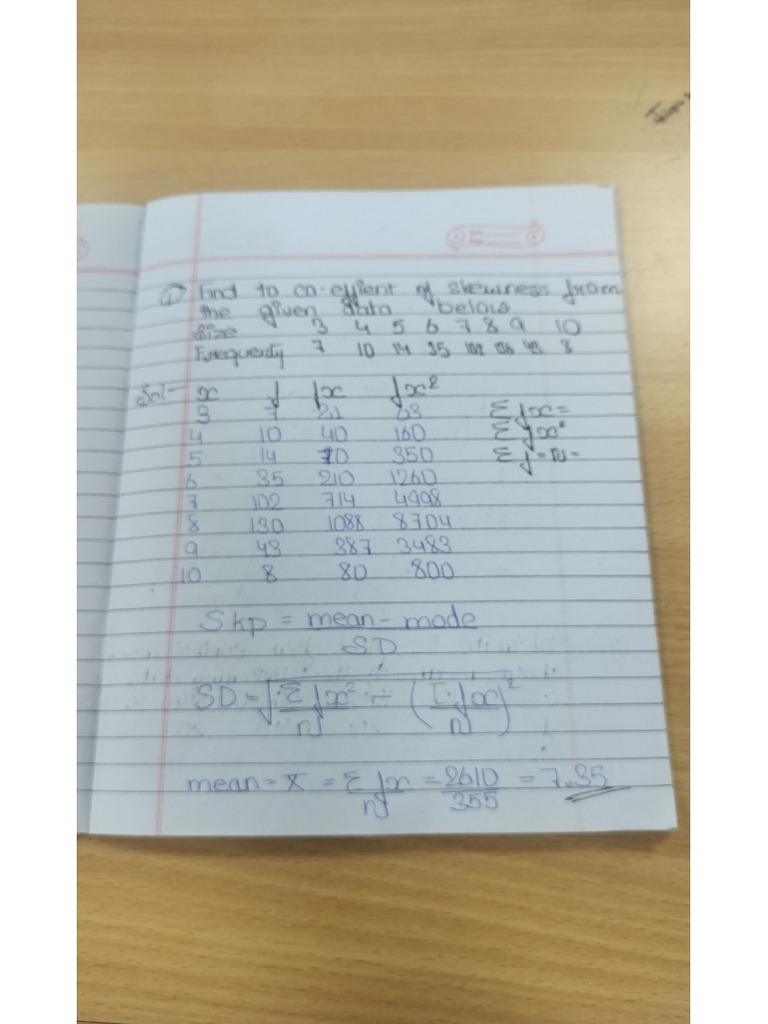 ① Find to co-effient of skewness from
the given data below
Size 3 4 5 6 7 8 9 10
Frequently 7 10 14 35 102 136 43 8
Sol- x f fx fx²
3 7 21 63 Σfx=
4 10 40 160 Σfx²
5 14 70 350 Σf=n=
6 35 210 1260
7 102 714 4998
8 130 1088 8704
9 43 387 3483
10 8 80 800
Skp = mean - mode
SD
SD = √Σfx²/n - (Σfx/n)²
mean = x̄ = Σfx/n = 2610/355 = 7.35